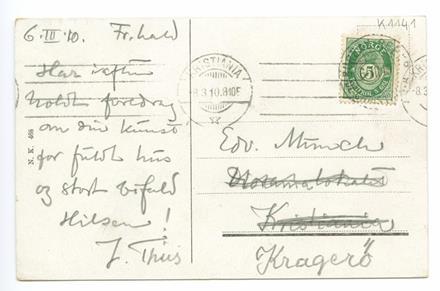 K1141
6.III.10. Fr. hald
KRISTIANIA
8.3.10.8-10E
NORGE
5
Har iaften
holdt foredrag
om din kunst
for fuldt hus
og stort bifald
Hilsen!
J. Thiis
N. K. 468
Edv. Munch
Kristiania
Kragerö